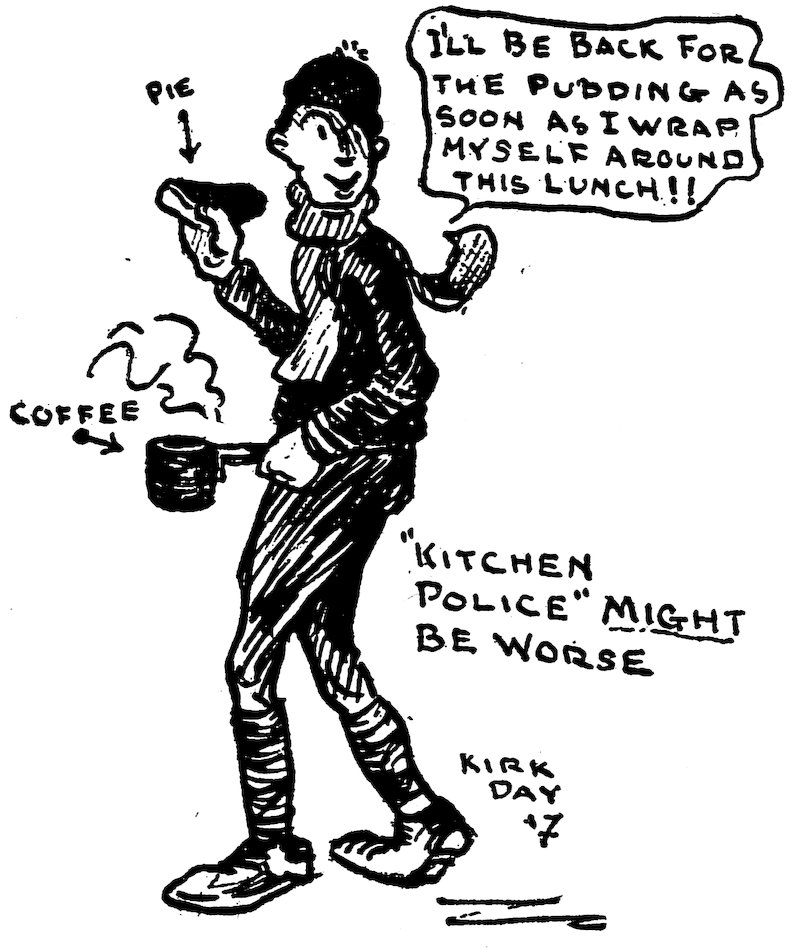 PIE
I'LL BE BACK FOR
THE PUDDING AS
SOON AS I WRAP
MYSELF AROUND
THIS LUNCH!!
COFFEE
"KITCHEN
POLICE" MIGHT
BE WORSE
KIRK
DAY
'17